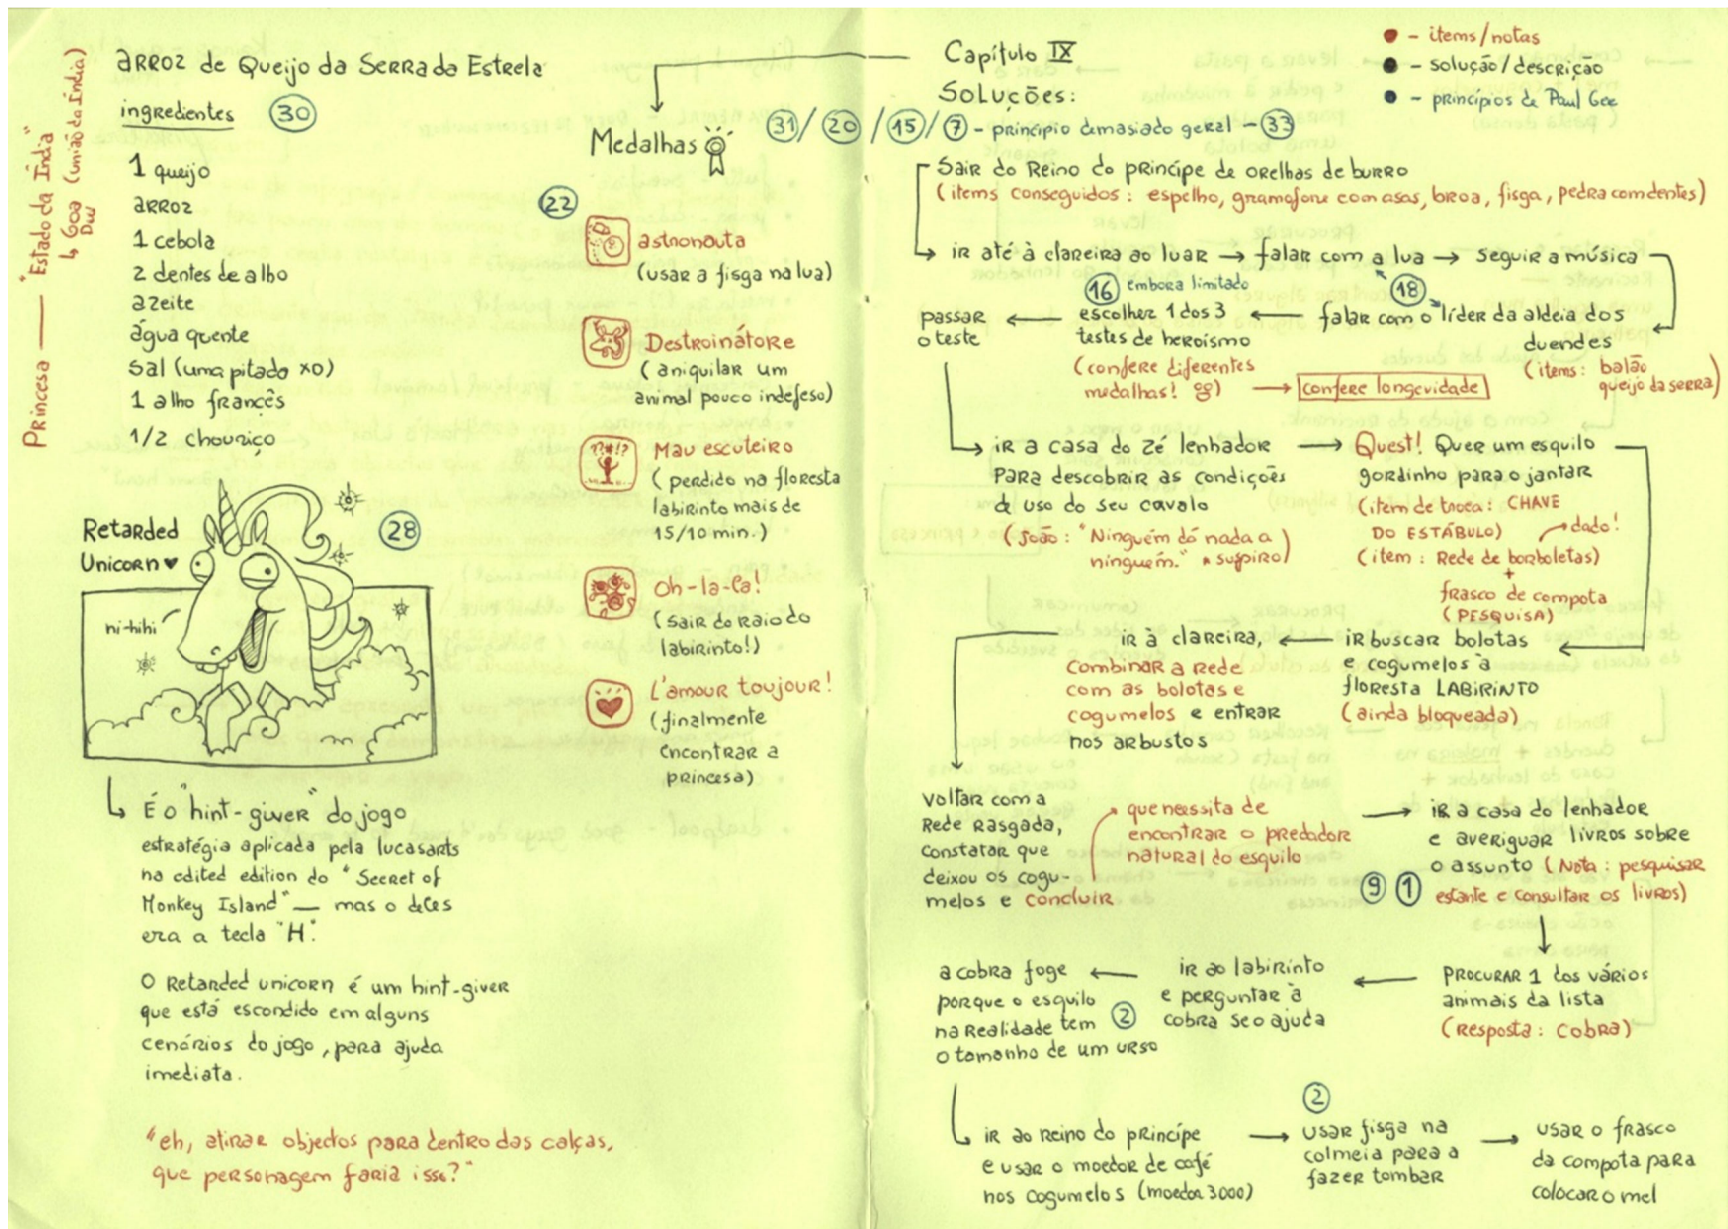 Princesa — "Estado da Índia"
↳ Goa (união da Índia)
arroz de Queijo da Serra da Estrela
ingredientes 30
1 queijo
arroz
1 cebola
2 dentes de alho
azeite
água quente
sal (uma pitada xD)
1 alho francês
1/2 chouriço
Retarded
Unicorn ♥
28
ni-hihi
↳ É o "hint-giver" do jogo
estratégia aplicada pela lucasarts
na edited edition do "Secret of
Monkey Island" — mas o deles
era a tecla "H".
O Retarded unicorn é um hint-giver
que está escondido em alguns
cenários do jogo, para ajuda
imediata.
"eh, atirar objectos para dentro das calças,
que personagem faria isso?"
Medalhas
22
astronauta
(usar a fisga na lua)
Destroinátore
(aniquilar um
animal pouco indefeso)
??#!?
Mau escuteiro
(perdido na floresta
labirinto mais de
15/10 min.)
Oh-la-la!
(sair do raio do
labirinto!)
L'amour toujour!
(finalmente
encontrar a
princesa)
Capítulo IX
Soluções:
- items/notas
- solução/descrição
- princípios de Paul Gee
31 / 20 / 15 / 7 - princípio demasiado geral - 33
Sair do Reino do príncipe de orelhas de burro
(items conseguidos: espelho, gramofone com asas, broa, fisga, pedra com dentes)
ir até à clareira ao luar → falar com a lua → seguir a música
16 embora limitado
18
passar
o teste
← escolher 1 dos 3
testes de heroísmo
(confere diferentes
medalhas!) → confere longevidade
← falar com o líder da aldeia dos
duendes
(items: balão
queijo da serra)
ir a casa do Zé lenhador
para descobrir as condições
de uso do seu cavalo
(João: "Ninguém dá nada a
ninguém." *suspiro)
→ Quest! Quer um esquilo
gordinho para o jantar
(item de troca: CHAVE
DO ESTÁBULO) dado!
(item: Rede de borboletas)
+
frasco de compota
(PESQUISA)
ir à clareira,
combinar a rede
com as bolotas e
cogumelos e entrar
nos arbustos
← ir buscar bolotas
e cogumelos à
floresta LABIRINTO
(ainda bloqueada)
voltar com a
Rede Rasgada,
constatar que
deixou os cogu-
melos e concluir
que necessita de
encontrar o predador
natural do esquilo
→ ir a casa do lenhador
e averiguar livros sobre
o assunto (Nota: pesquisar
9 1 estante e consultar os livros)
a cobra foge
porque o esquilo
na realidade tem 2
o tamanho de um urso
← ir ao labirinto
e perguntar à
cobra se o ajuda
← PROCURAR 1 dos vários
animais da lista
(resposta: cobra)
ir ao reino do príncipe
e usar o moedor de café
nos cogumelos (moedor 3000)
2
→ usar fisga na
colmeia para a
fazer tombar
→ usar o frasco
da compota para
colocar o mel